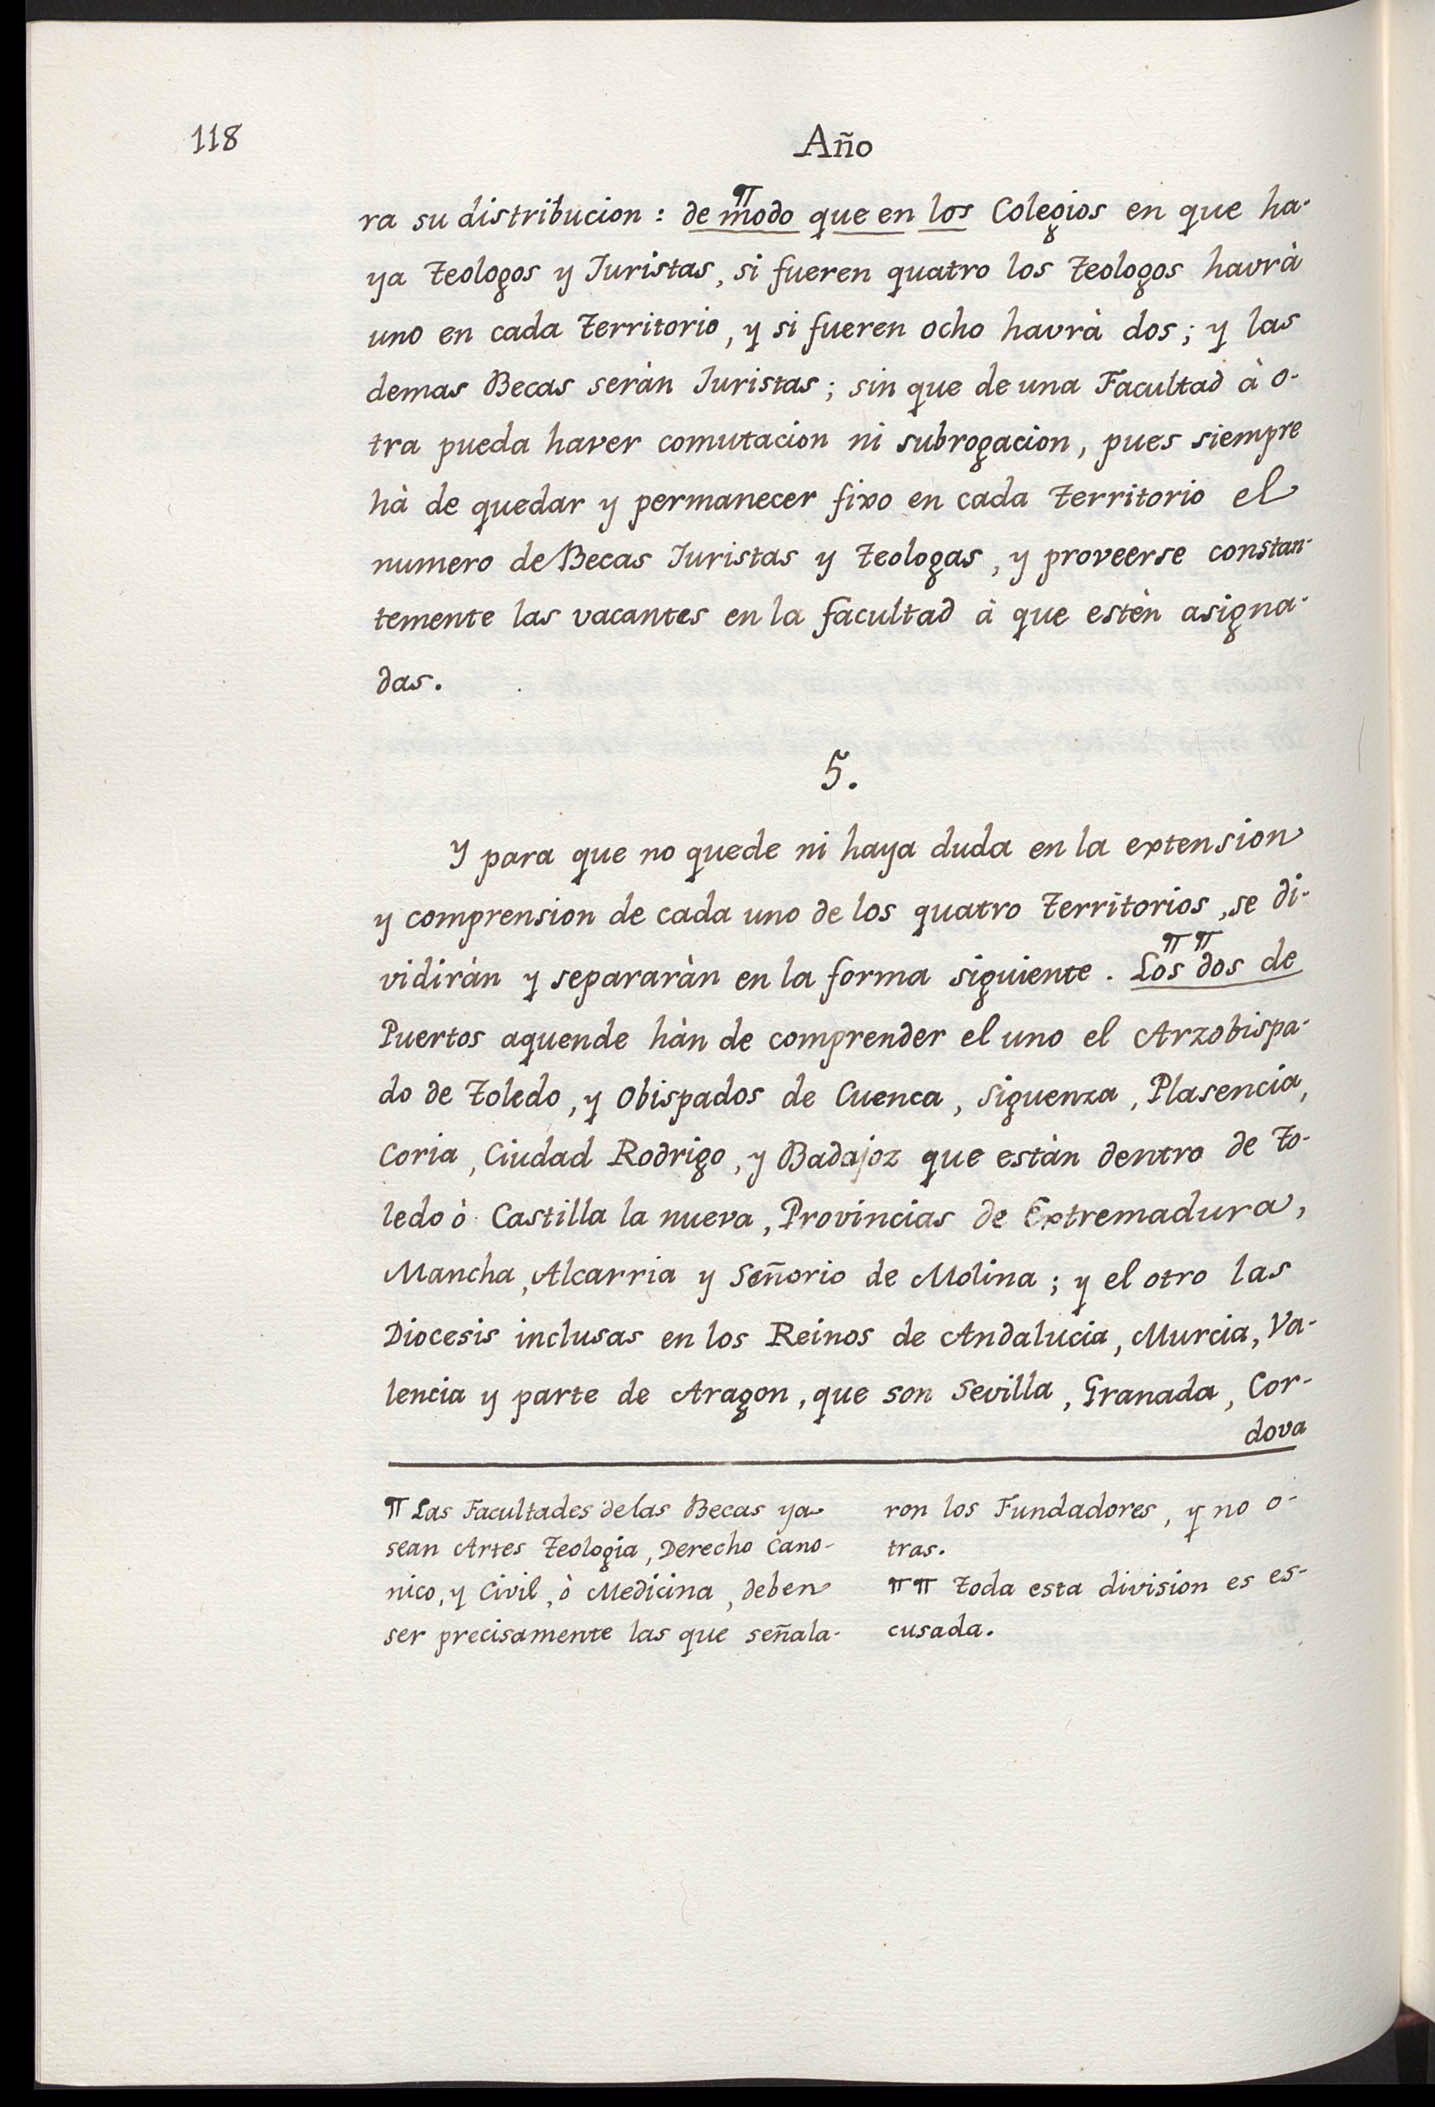 118
Año
ra su distribucion : de modo que en los Colegios en que ha-
ya Teologos y Juristas, si fueren quatro los Teologos havrà
uno en cada Territorio, y si fueren ocho havrà dos; y las
demas Becas seràn Juristas; sin que de una Facultad à o-
tra pueda haver comutacion ni subrogacion, pues siempre
hà de quedar y permanecer fixo en cada Territorio el
numero de Becas Juristas y Teologas, y proveerse constan-
temente las vacantes en la facultad à que estèn asigna-
das.
5.
Y para que no quede ni haya duda en la extension
y comprension de cada uno de los quatro Territorios, se di-
vidiràn y separaràn en la forma siguiente. Los dos de
Puertos aquende hàn de comprender el uno el Arzobispa-
do de Toledo, y Obispados de Cuenca, Siguenza, Plasencia,
Coria, Ciudad Rodrigo, y Badajoz que estàn dentro de To-
ledo ò Castilla la nueva, Provincias de Extremadura,
Mancha, Alcarria y Señorio de Molina; y el otro las
Diocesis inclusas en los Reinos de Andalucia, Murcia, Va-
lencia y parte de Aragon, que son Sevilla, Granada, Cor-
dova
¶ Las Facultades de las Becas ya
sean Artes Teologia, Derecho Cano-
nico, y Civil, ò Medicina, deben
ser precisamente las que señala-
ron los Fundadores, y no o-
tras.
¶¶ Toda esta division es es-
cusada.